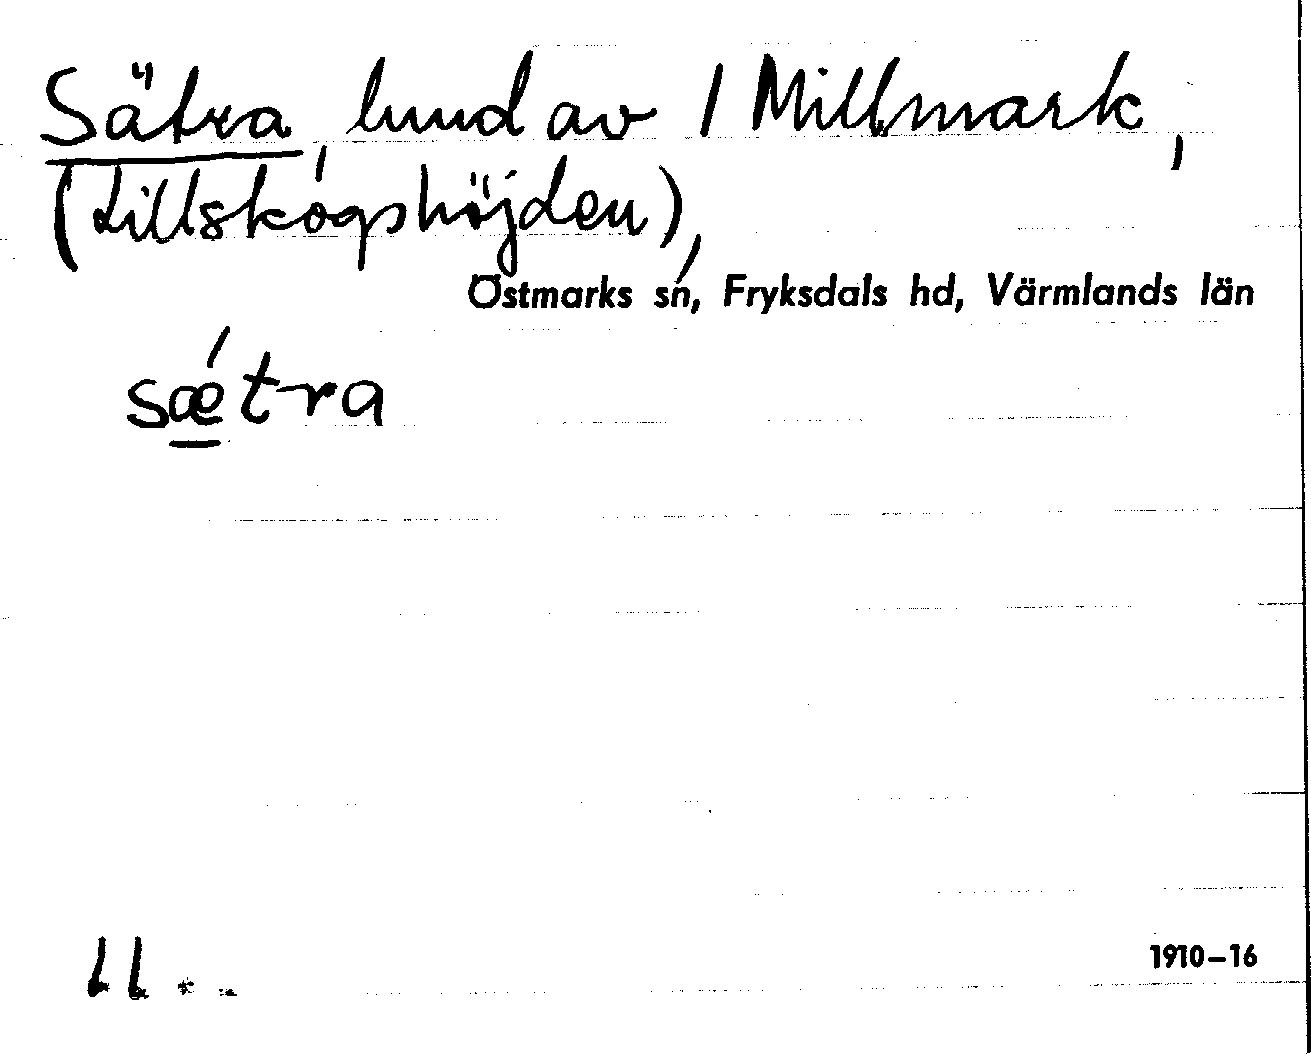 Sätra, lund av 1 Millmark,
(Lillskogshöjden),
Östmarks sn, Fryksdals hd, Värmlands län
sǽtra
1910–16